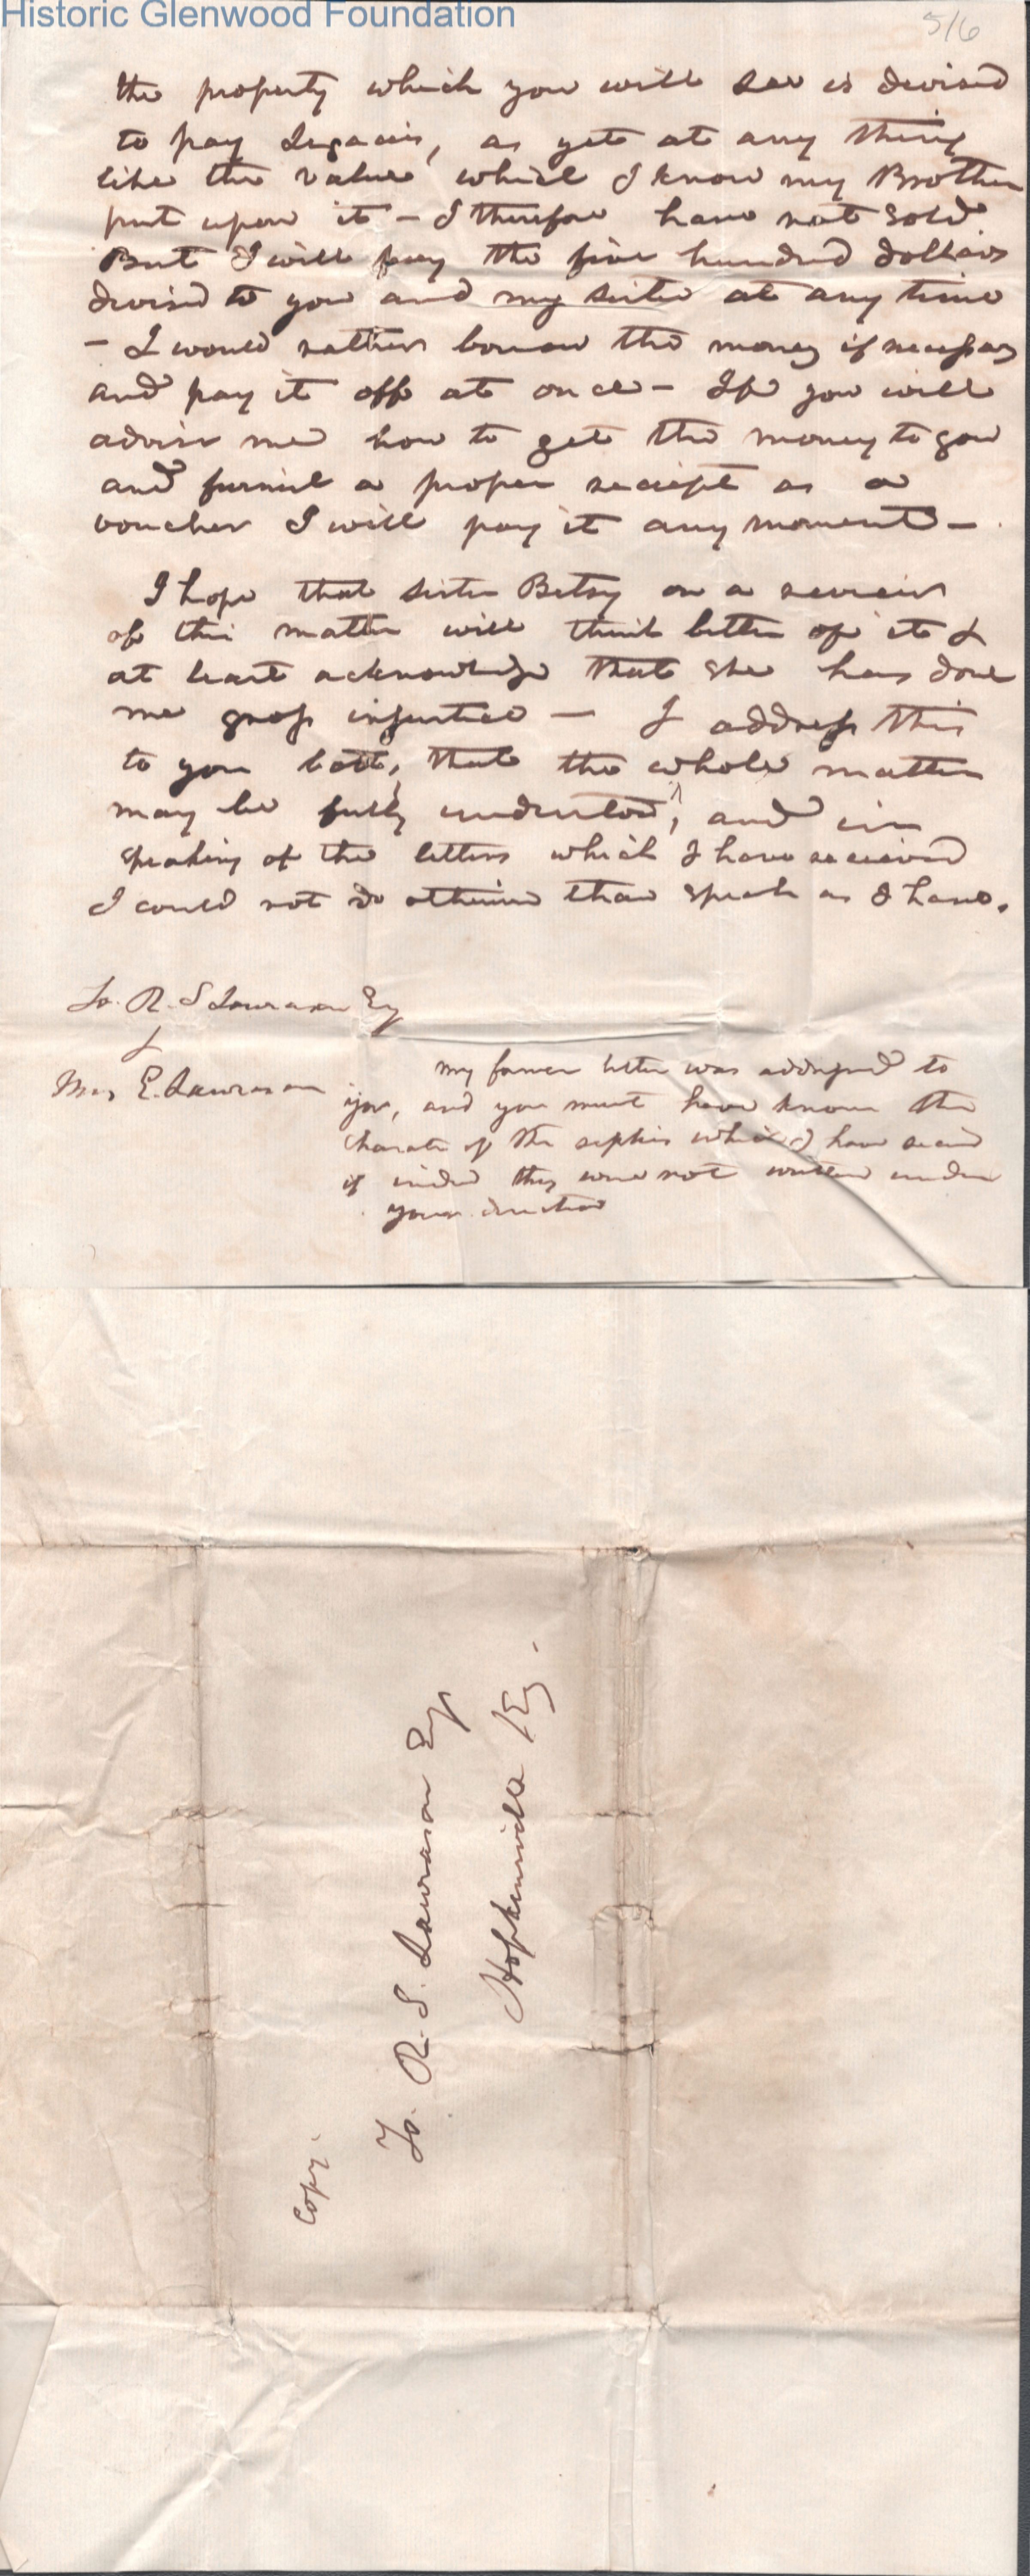 Historic Glenwood Foundation
5/6
the property which you will see is devised
to pay Legacies, as yet at any thing
like the value which I know my Brother
put upon it – I therefore have not sold
But I will pay the five hundred dollars
devised to you and my sister at any time
– I would rather borrow the money if necessary
and pay it off at once – If you will
advise me how to get the money to you
and furnish a proper receipt as a
voucher I will pay it any moment –
I hope that sister Betsy on a review
of this matter will think better of it &
at least acknowledge that she has done
me gross injustice – I address this
to you both, that the whole matter
may be fully understood, and in
speaking of the letters which I have received
I could not do otherwise than speak as I have.
To. R. S Lawrason Esq
&
Mrs E. Lawrason
my former letter was addressed to
you, and you must have known the
character of the replies which I have received
if indeed they were not written under
your direction
Copy.
To. R. S. Lawrason Esq
Hopkinsville Ky.